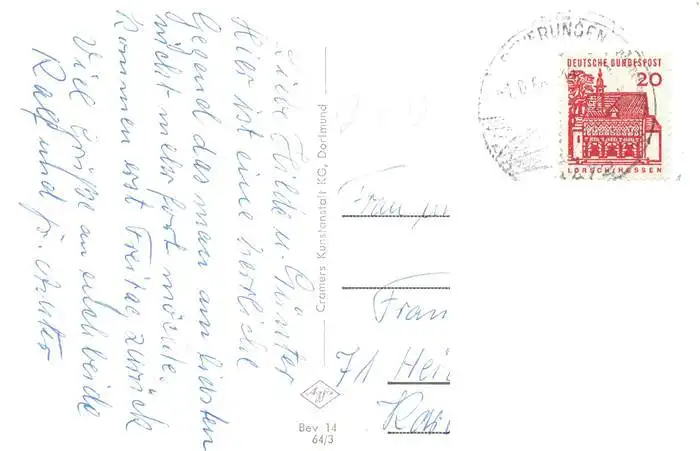 Liebe Hilde u. Günter
Hier ist eine herrliche
Gegend das man am liebsten
nicht mehr fort möchte.
Kommen erst Freitag zurück
Viel Grüße an euch beide
Ralf und
Cramers Kunstanstalt KG, Dortmund
Bev 14
64/3
DEUTSCHE BUNDESPOST
20
LORSCH/HESSEN
Frau
Fran
71 Hei